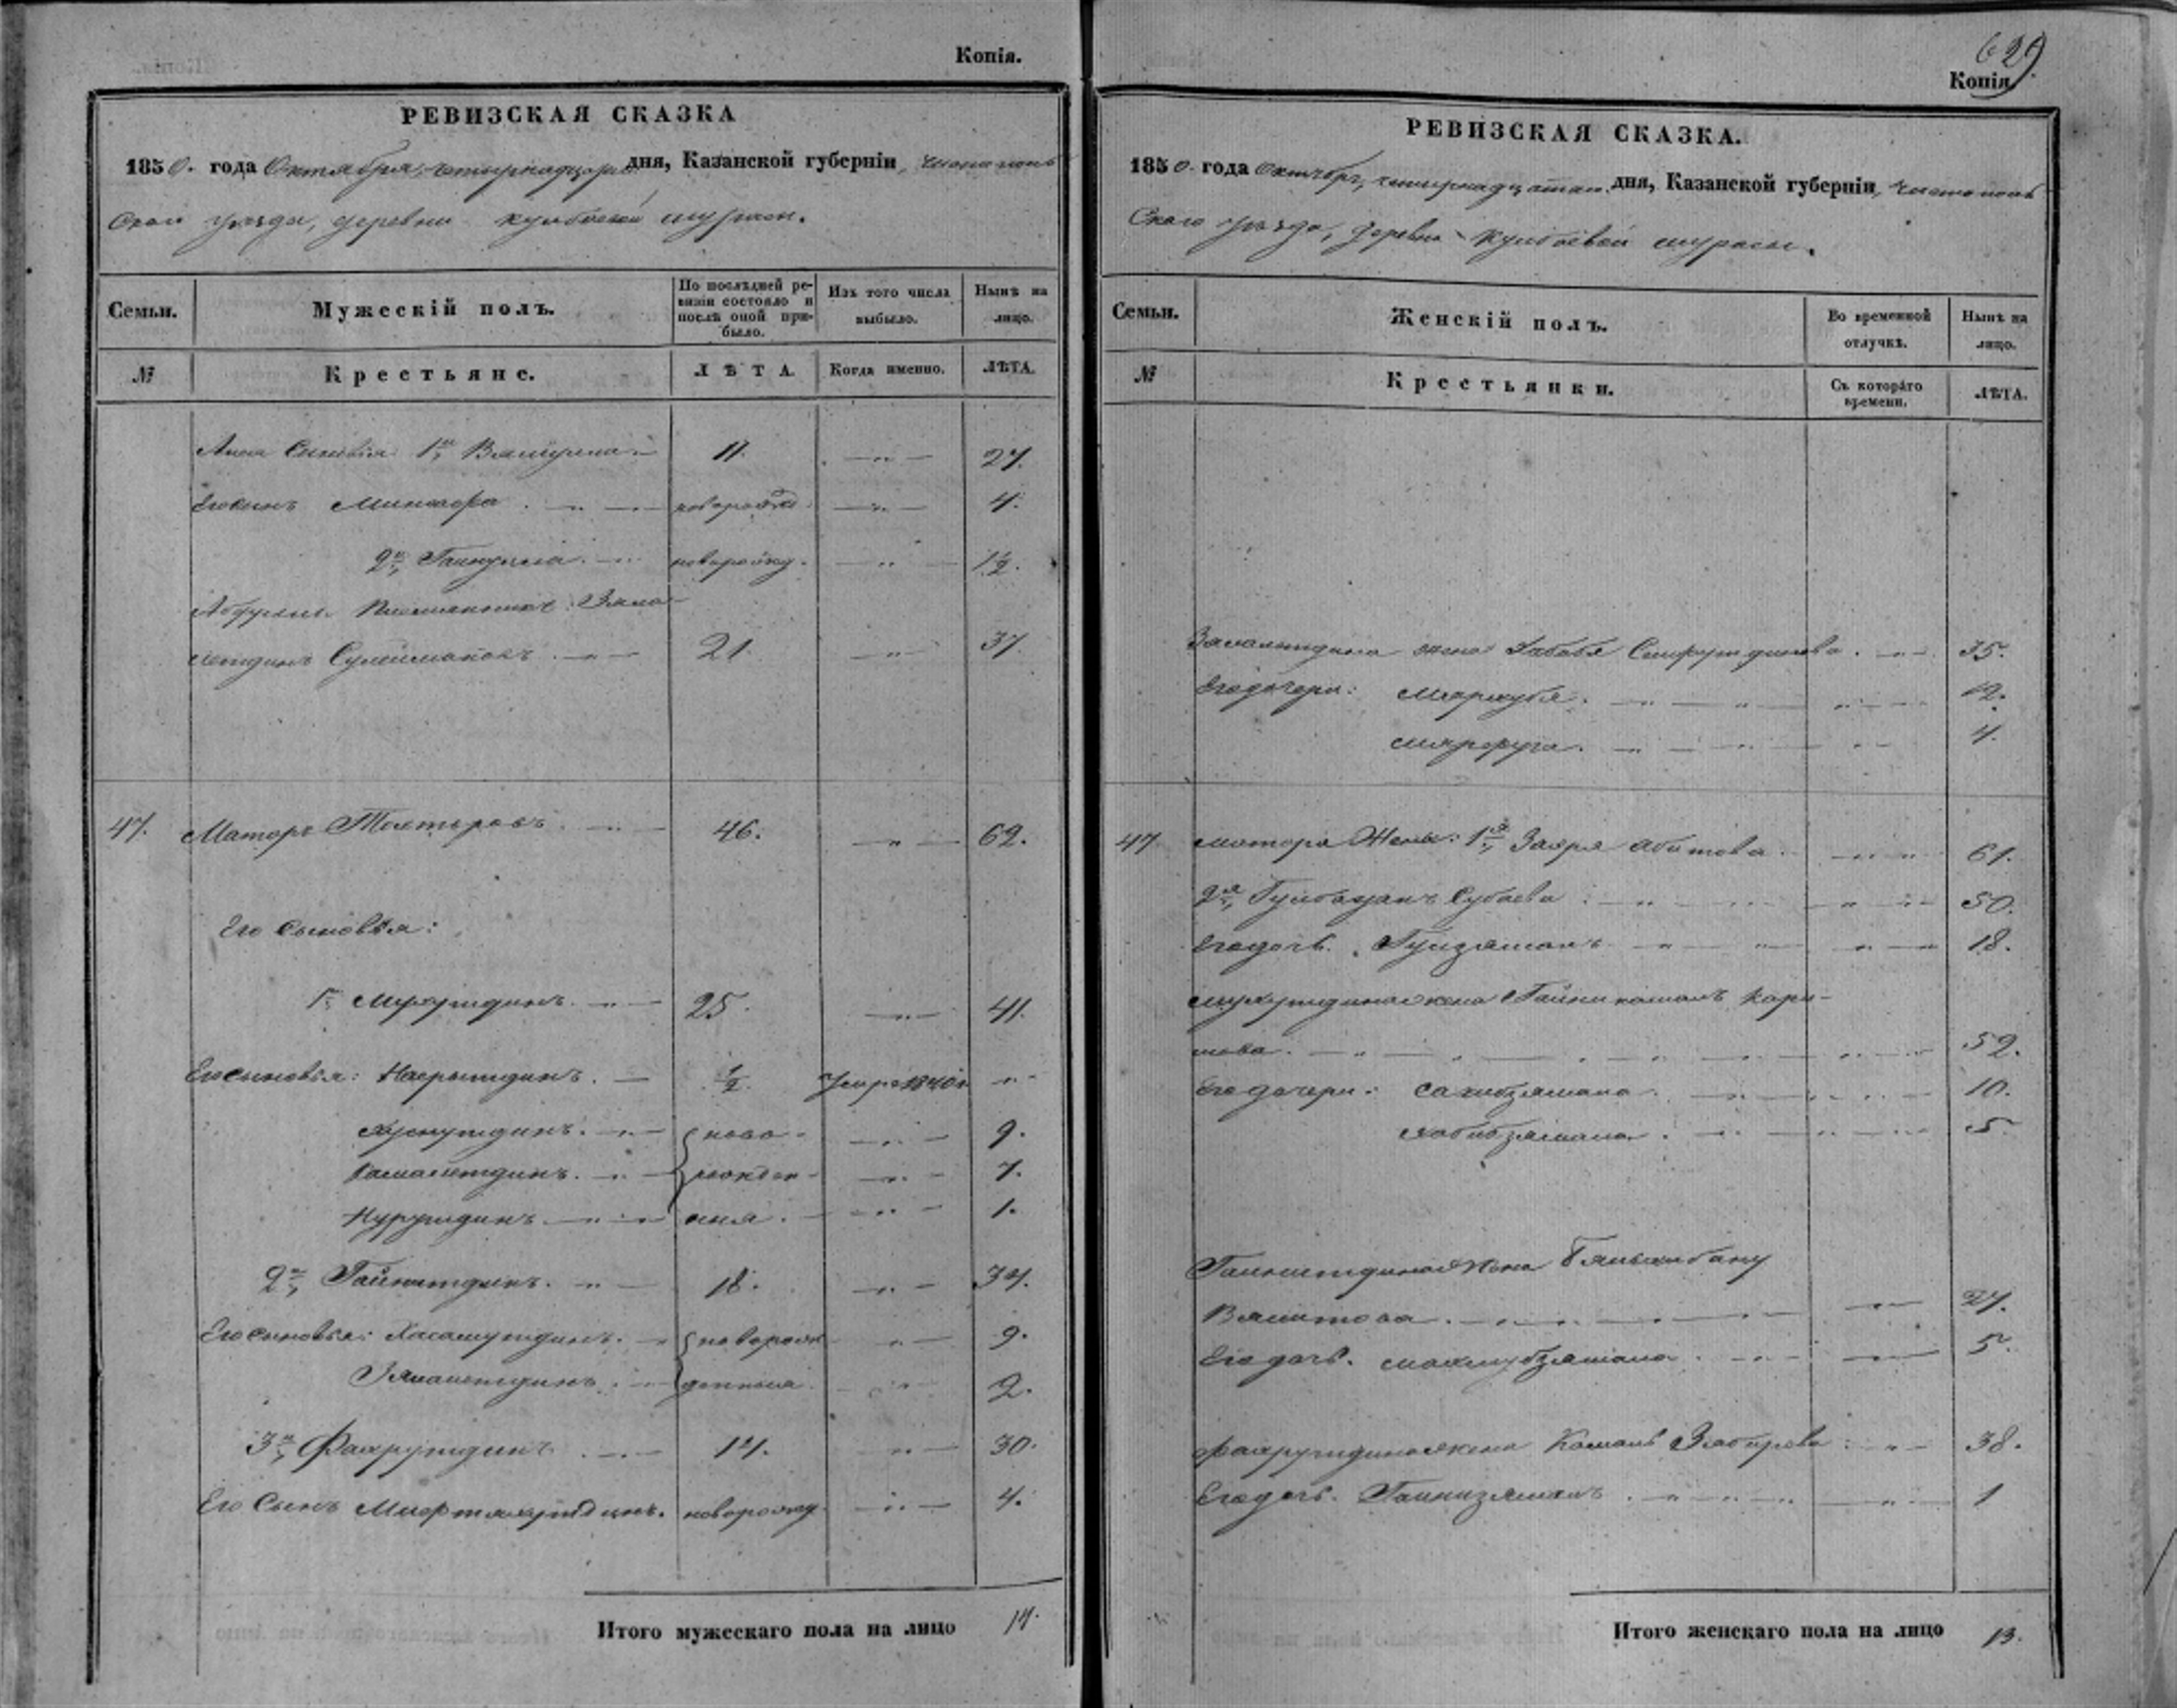 Копія.
РЕВИЗСКАЯ СКАЗКА
1850. года Октября, четырнадцатаго дня, Казанской губерніи, Чистополь
скаго уѣзда, деревни Кулбаевой Мурасы.
Семьи.
Мужескій полъ.
По послѣдней ревизіи состояло и послѣ оной прибыло.
Изъ того числа выбыло.
Нынѣ на лицо.
№
Крестьяне.
ЛѢТА.
Когда именно.
ЛѢТА.
сыновья 1й 11. 27.
Его сынъ новорожд 4.
2й Гайнулла новорожд. 1½.
Племянникъ Зяма-
летдинъ Сулеймановъ 21. 37.
47. Маторъ Тохтаровъ 46. 62.
Его сыновья:
1й Мухутдинъ 25. 41.
Его сыновья: Насрытдинъ. ½. Умре 1840г
Хуснутдинъ. ново- 9.
Камалетдинъ. рожден- 7.
Нурутдинъ ныя. 1.
2й Гайнитдинъ. 18. 34.
Его сыновья: Хасамутдинъ. новорож 9.
Зямалетдинъ. денныя. 2.
3й Фахрутдинъ 14. 30.
Его сынъ новорожд. 4.
Итого мужескаго пола на лицо 14.
629
Копія.
РЕВИЗСКАЯ СКАЗКА.
1850. года Октября, четырнадцатаго дня, Казанской губерніи, Чистополь
скаго уѣзда, деревни Кулбаевой Мурасы.
Семьи.
Женскій полъ.
Во временной отлучкѣ.
Нынѣ на лицо.
№
Крестьянки.
Съ котораго времени.
ЛѢТА.
Зямалетдина жена Хабибя Сайфутдинова. 35.
Его дочери: Мархубя. 12.
4.
47 Матора жены: 1я Заяря Абитова. 61.
2я Гулбадянъ Субаева 50.
Его дочь. Гулзяманъ 18.
Мухутдина жена Гайникамалъ Кари-
мова. 52.
Его дочери: Сахибзямала. 10.
Хабибзямала. 5.
Гайнитдина жена
Вялитова. 27.
Его дочь. Махмубзямала. 5.
Фахрутдина жена Камаль Зябирова 38.
Его дочь. Гайнизяманъ. 1
Итого женскаго пола на лицо 13.